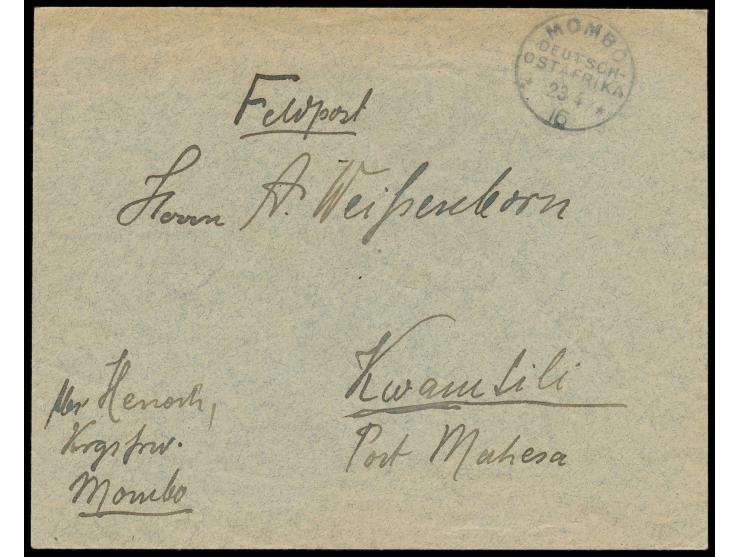 MOMBO
DEUTSCH-
OSTAFRIKA
23 4
16
Feldpost
Herrn A. Weißenborn
Kwamtili
Post Muhesa
Henoch,
Krgsfrw.
Mombo